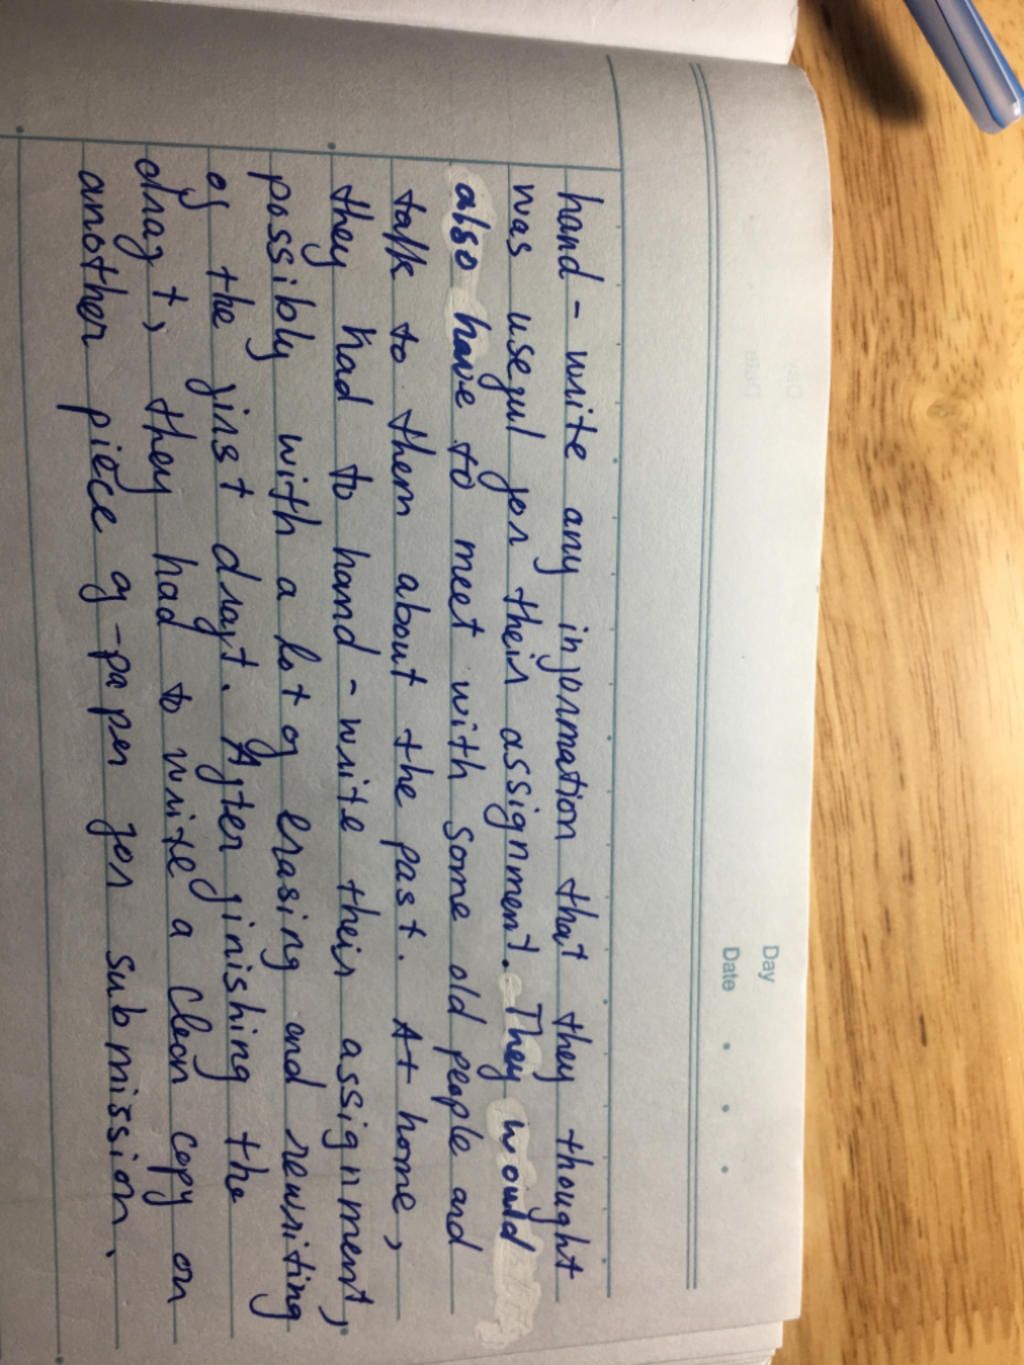 Day
Date
hand-write any information that they thought
was useful for their assignment. They would
also have to meet with some old people and
talk to them about the past. At home,
they had to hand-write their assignment,
possibly with a lot of erasing and rewriting
of the first draft. After finishing the
draft, they had to write a clean copy on
another piece of paper for submission.